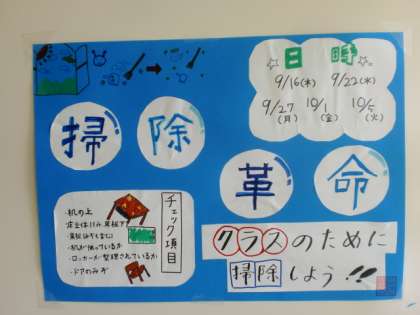 日時
9/16(木) 9/22(水)
9/27(月) 10/1(金) 10/5(火)
掃除
革命
チェック項目
・机の上
・机が揃っているか
・ロッカーが整理されているか
・ドアのみぞ
クラスのために
掃除しよう!!